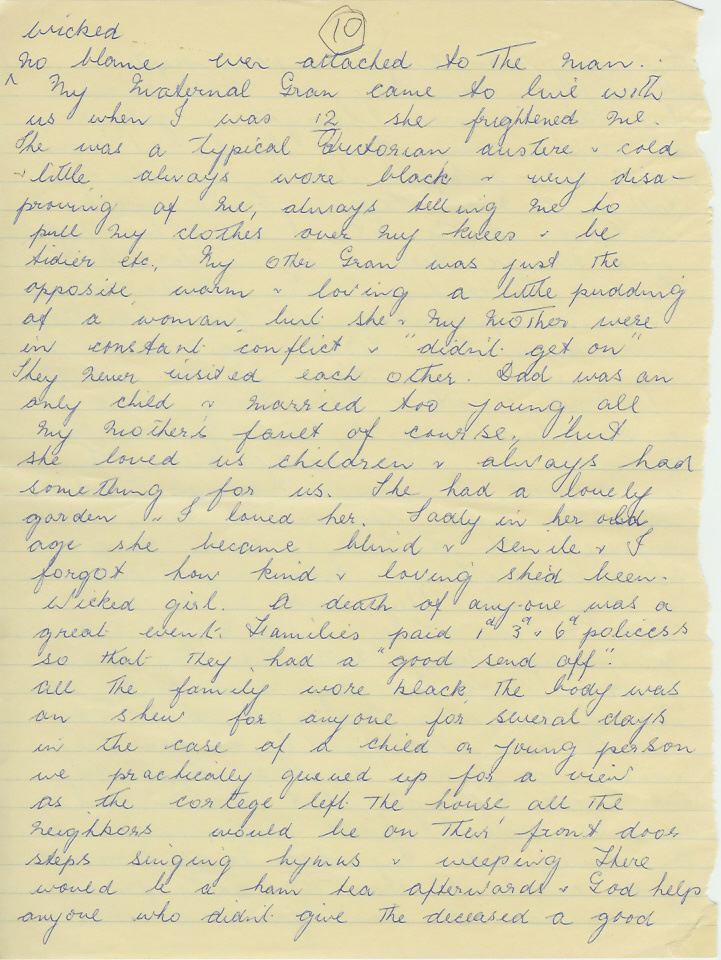 10
wicked
no blame ever attached to the man..
^ My Maternal Gran came to live with
us when I was 12 she frightened me.
She was a typical Victorian austere & cold
& little always wore black & very disa-
proving of me, always telling me to
pull my clothes over my knees & be
tidier etc. My other Gran was just the
opposite, warm & loving a little pudding
of a woman, but she & my mother were
in constant conflict & "didn't get on"
They never visited each other. Dad was an
only child & married too young all
my mother's fault of course, but
she loved us children & always had
something for us. She had a lovely
garden, I loved her. Sadly in her old
age she became blind & senile & I
forgot how kind & loving she'd been.
Wicked girl. A death of any-one was a
great event. Families paid 1d 3d & 6d policess
so that they had a "good send off".
all the family wore black, the body was
on shew for anyone for several days
in the case of a child or young person
we practically queued up for a view
as the cortege left the house all the
neighbors would be on their front door
steps singing hymns & weeping There
would be a ham tea afterwards & God help
anyone who didn't give the deceased a good